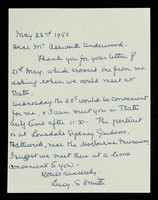 May 22nd 1952
Dear Mr Ashworth Underwood
Thank you for your letter of
21st May, which crossed one from me
asking when we could meet at
Tate.
Wednesday the 28th would be convenient
for me, & I can meet you
any time after 11.30. The portrait
is at Lonsdale Sydney Gardens,
, near the Holburne Museum,
I suggest we meet there at a time
convenient to you -
Yours sincerely
Lucy S. Smith